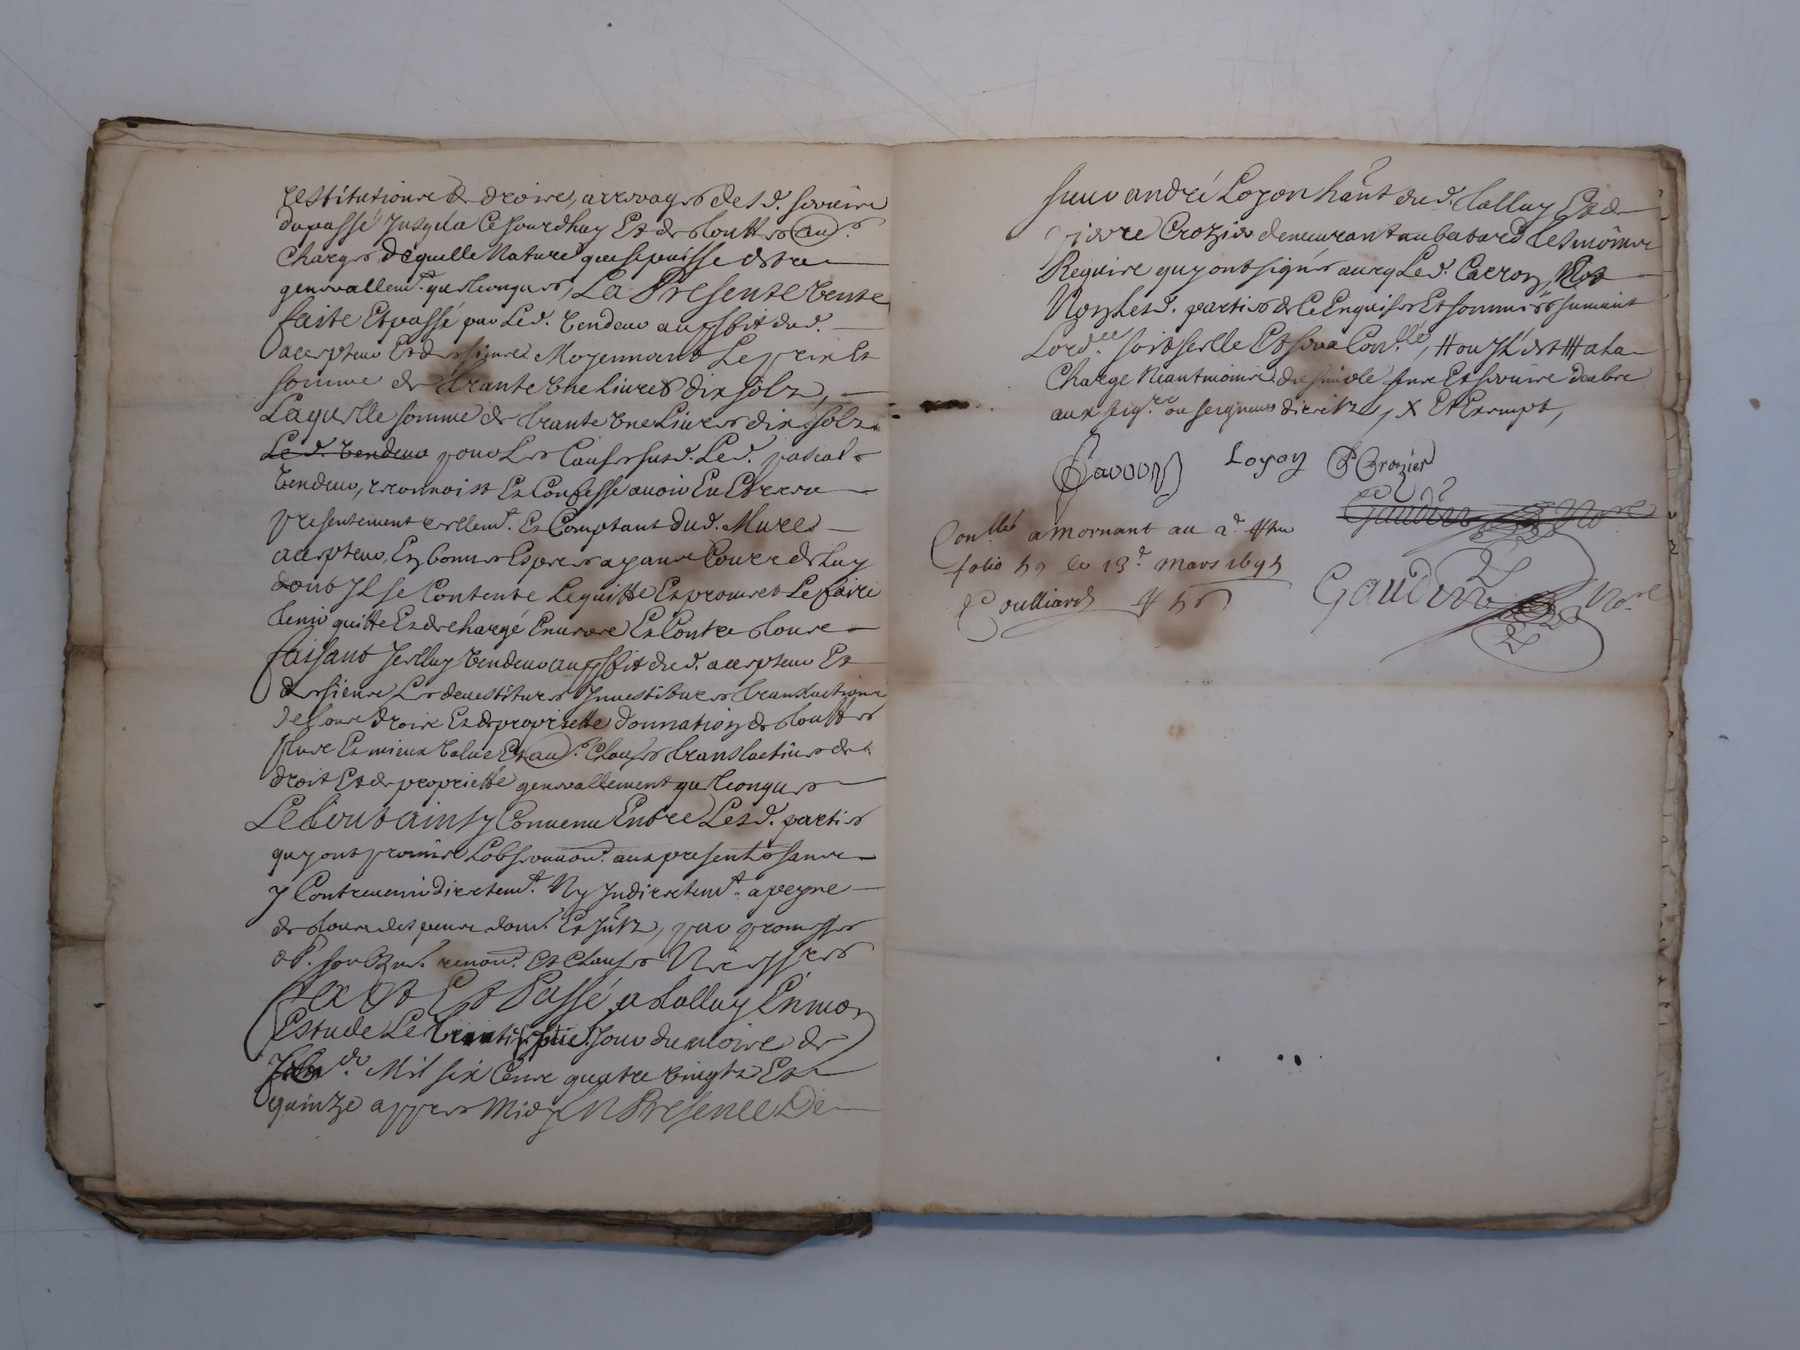 restitutions de droits, arrerages desd. servis
du passé Jusqua Ce Jourdhuy Et de touttes au.
Charges de quelle Nature que se puisse estre
generallemt. quelconques, La Presente Vente
faite Et passé par Led. Vendeur au pffit dud.
accepteur Et des siens Moyennant Le prix Et
somme de trante Une Livres dix solz,
Laquelle somme de trante Une Livres dix solz
Led. Vendeur pour Les Causes susd. Led.
Vendeur, reconnoist Et Confesse avoir Eu Et receu
presentement reellemt. Et Comptant dud.
accepteur, En bonnes Especes ayants Cours de Luy
dont Il se Contente Lequitte Et promet Le faire
tenir quitte Et deschargé Envers Et Contre tous
faisant Icelluy Vendeur au pffit dud. accepteur Et
des siens Les devestitures Investitures translactions
de tous droits Et de proprietté donnation de touttes
plus Et mieux Value Et au. Clauses translactives de
droit Et de proprietté generallement quelconques
Le tout ainsy Convenu Entre Lesd. parties
quy ont promis Lobservaon. aux presentes sans
y Contrevenir directemt. Ny Indirectemt. a peyne
de tous despens dom. Et Intz, par promesses
obt. soubzm. renon. Et Clauses Necessres
Fait Et Passé a talluy En mon
Estude Le jour du mois de
Mil six Cens quatre Vingtz Et
quinze appres Midy En Presence De
sieur andré Loyon hãnt dud. talluy Et de
pierre Crozier demeurant au batard tesmoins
Requis quy ont signé avecq Led. Carron, Et
Non Lesd. parties de Ce Enquises Et sommées suivant
Lordce. soit scelle Et sera Conllé, a la
Charge Neantmoins du Et servis deube
aux seigrs ou seigneurs directz, X Et Exempt,
Carron Loyon P Crozier
Gaudin Nore
Conllé a Mornant au 2d.
folio 59 le 13d. Mars 1695
Gaudin Nore